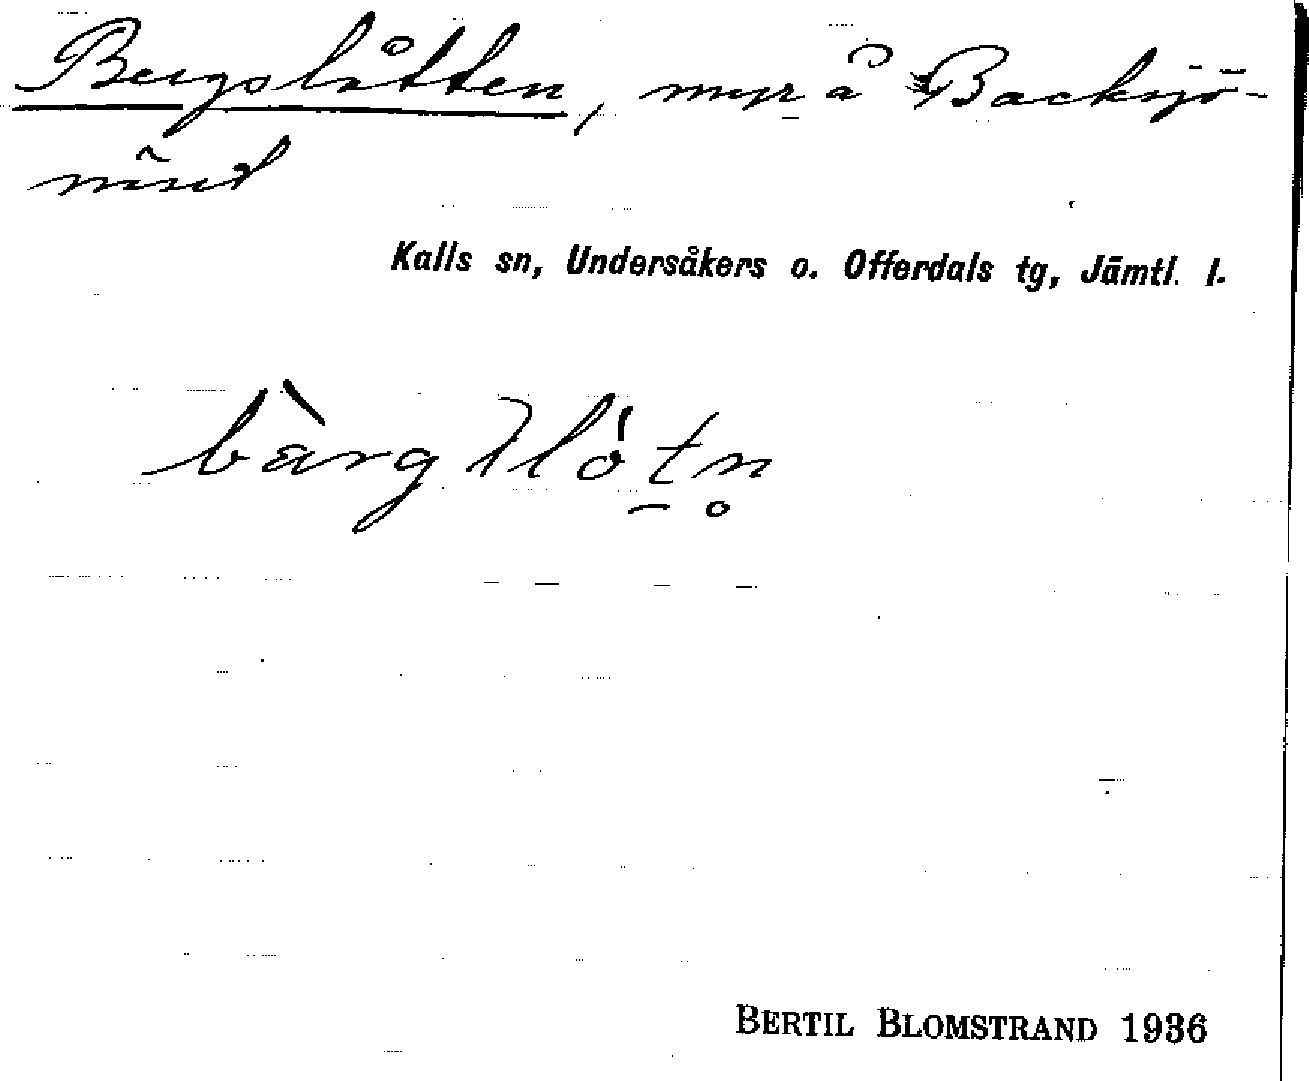 Bergslåtten, myr å Backsjö-
näset
Kalls sn, Undersåkers o. Offerdals tg, Jämtl. l.
BERTIL BLOMSTRAND 1936